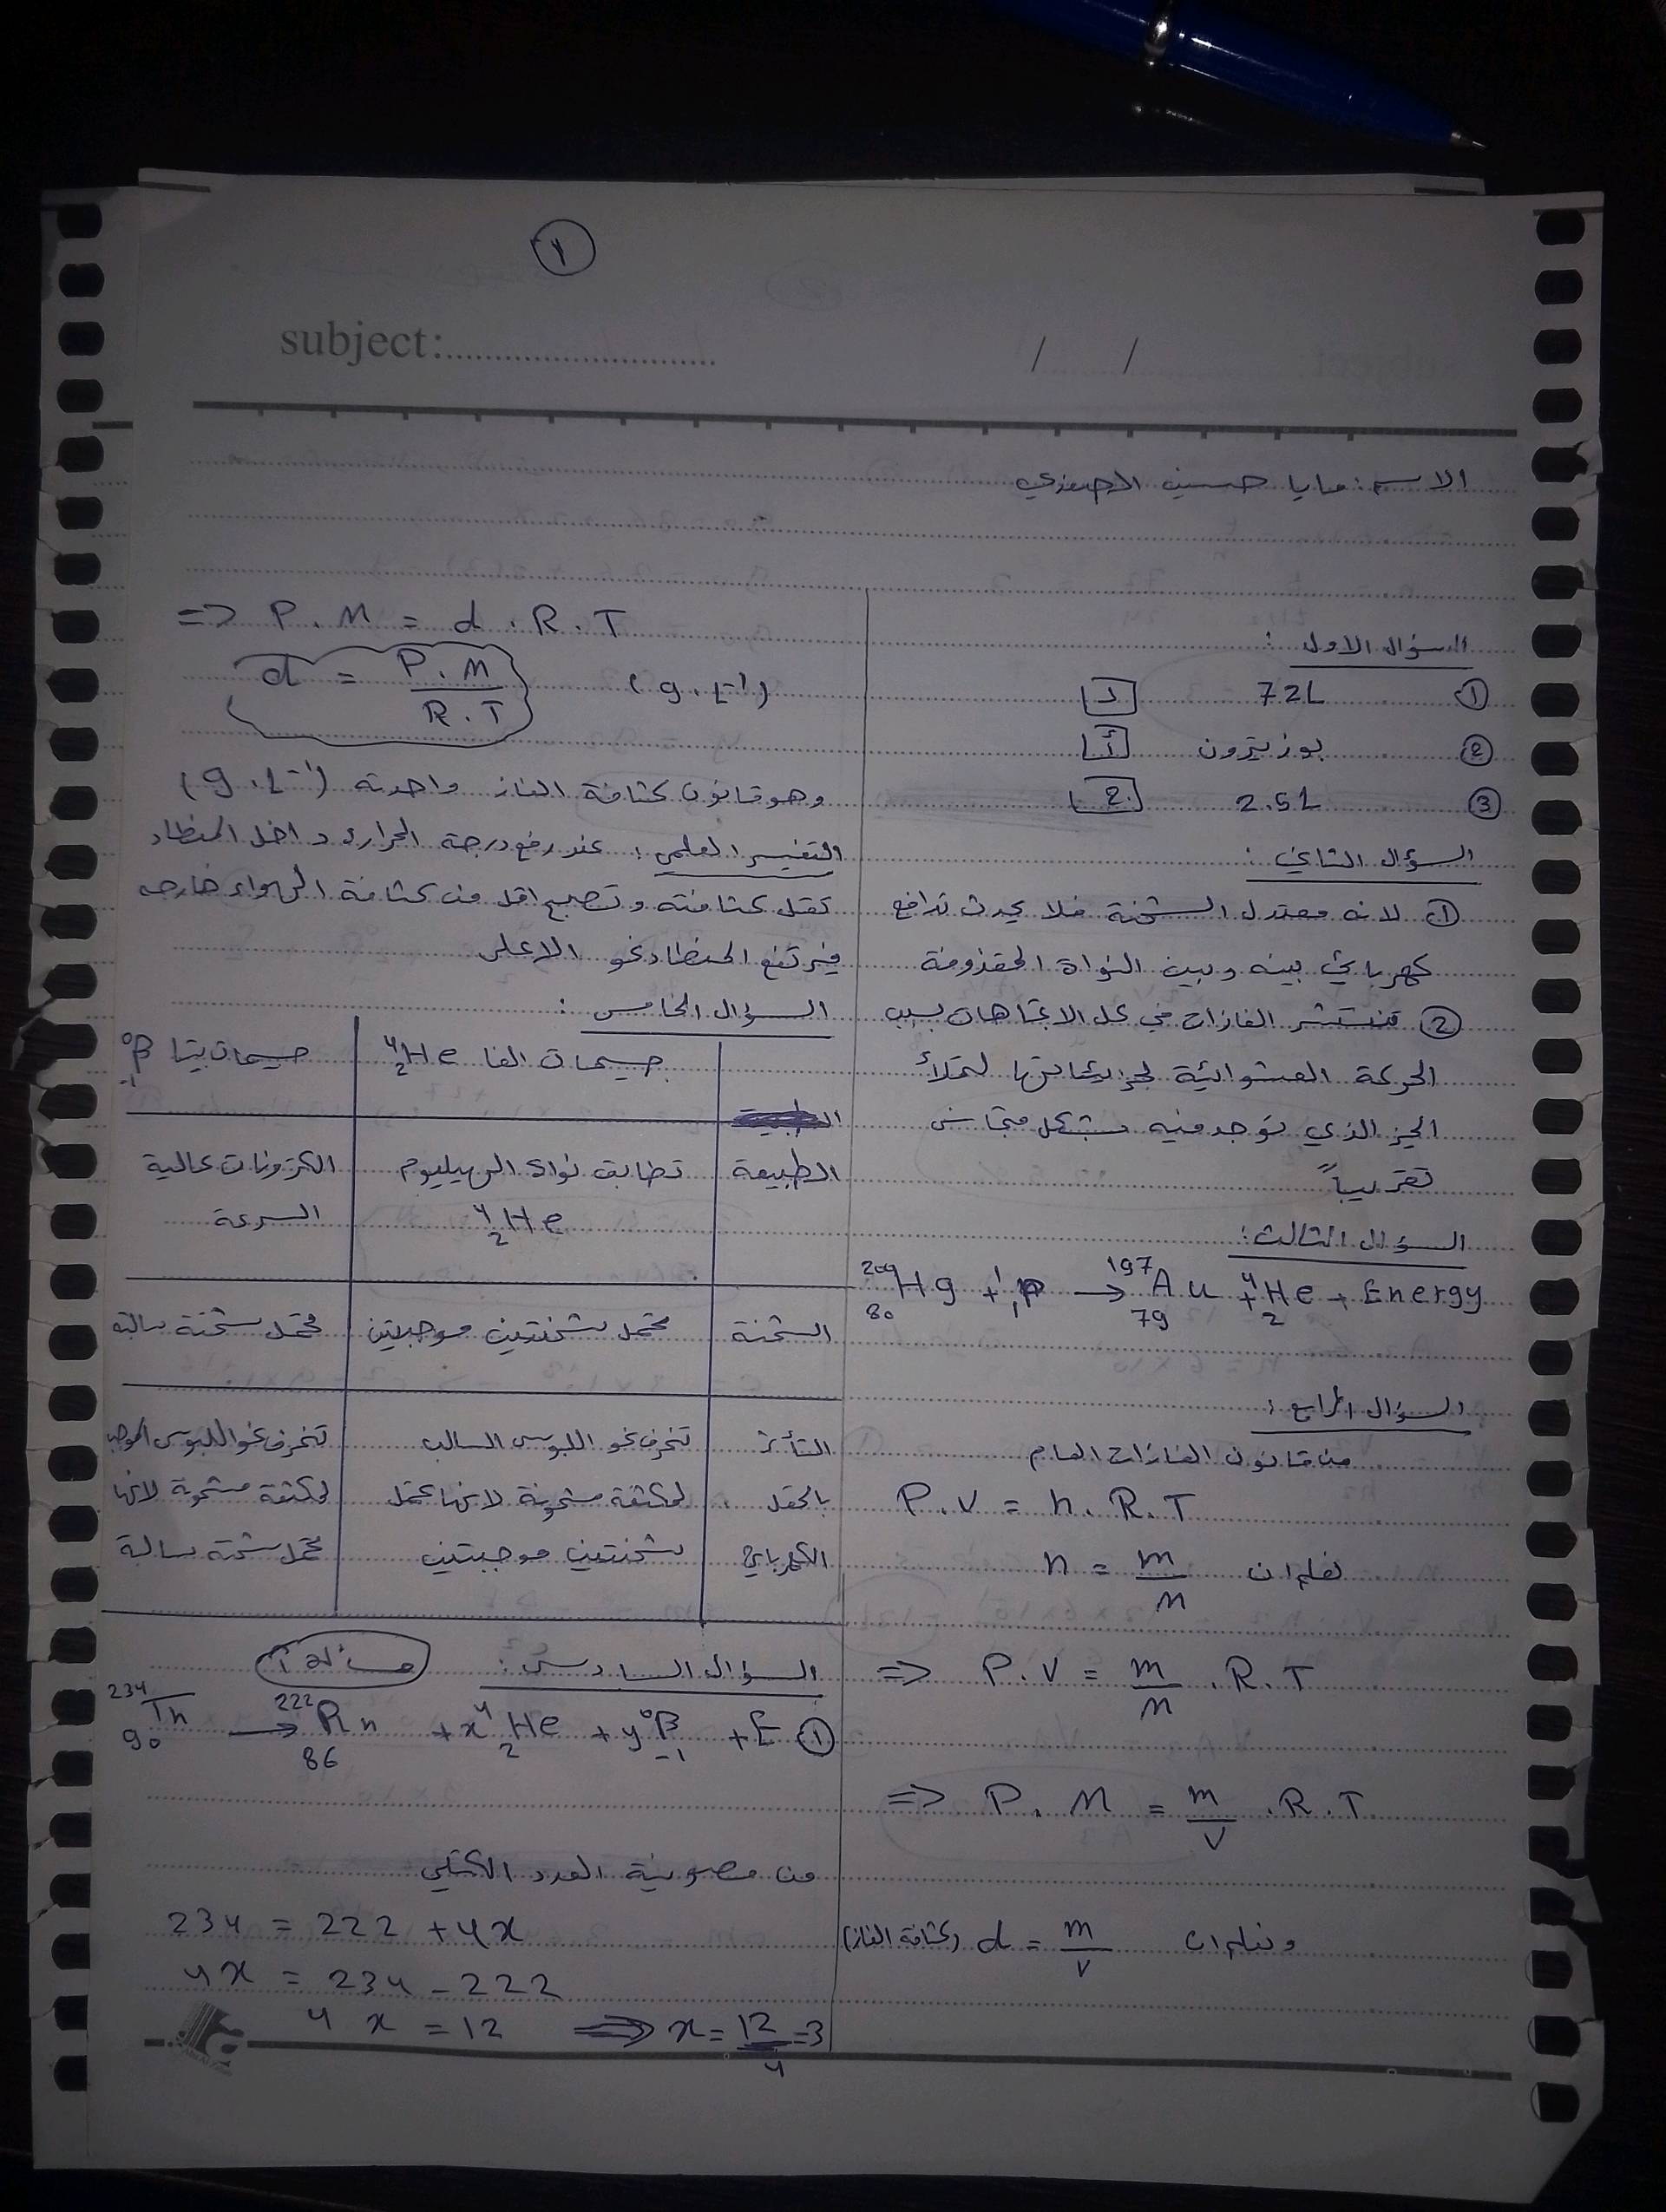 ١
subject:
/ /
الاسم: مايا حسين
السؤال الاول:
① 72L
② بوزيترون أ
③ 2.5L
السؤال الثاني:
① لانه معتدل الشحنة فلا يحدث تدافع
كهربائي بينه وبين النواة المقذوفة
② تنتشر الغازات في كل الاتجاهات بسبب
الحركة العشوائية لجزيئاتها لتملأ
الحيز الذي توجد فيه بشكل متجانس
تقريباً
السؤال الثالث:
²⁰⁰₈₀Hg + ¹₁P → ¹⁹⁷₇₉Au + ⁴₂He + Energy
السؤال الرابع:
من قانون الغازات العام
P.V = n.R.T
نعلم ان n = m/M
=> P.V = m/M .R.T
=> P.M = m/V .R.T
ونعلم ان d = m/V (كثافة الغاز)
=> P.M = d.R.T
d = P.M/R.T (g.L⁻¹)
وهو قانون كثافة الغاز واحدته (g.L⁻¹)
التفسير العلمي: عند رفع درجة الحرارة داخل المنطاد
تقل كثافته وتصبح اقل من كثافة الهواء خارجه
فيرتفع المنطاد نحو الاعلى
السؤال الخامس:
جسيمات الفا ⁴₂He جسيمات بيتا ⁰₋₁β
الطبيعة تطابق نواة الهيليوم الكترونات عالية
⁴₂He السرعة
الشحنة تحمل شحنتين موجبتين تحمل شحنة سالبة
التأثر تنحرف نحو اللبوس السالب تنحرف نحو اللبوس الموجب
بالحقل لمكثفة مشحونة لانها تحمل لمكثفة مشحونة لانها
الكهربائي شحنتين موجبتين تحمل شحنة سالبة
السؤال السادس: مسألة 1
① ²³⁴₉₀Th → ²²²₈₆Rn + x⁴₂He + y⁰₋₁β + E
من مصونية العدد الكتلي
234 = 222 + 4x
4x = 234 - 222
4x = 12 => x = 12/4 = 3